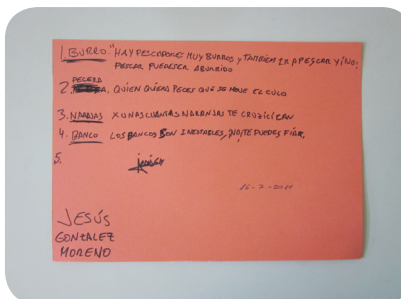 1. BURRO: "HAY PESCADORE MUY BURROS y TAMBIÉN IR A PESCAR Y ¡NO!
PESCAR PUEDE SER ABURRIDO
PECERA
2. QUIEN QUIERA PECES QUE SE MOJE EL CULO
3. NARANJAS X UNAS CUANTAS NARANJAS TE CRUCIFICAN
4. BANCO LOS BANCOS SON INESTABLES, ¡NO! TE PUEDES FIAR.
5.
16-7-2011
JESÚS
GONZALEZ
MORENO